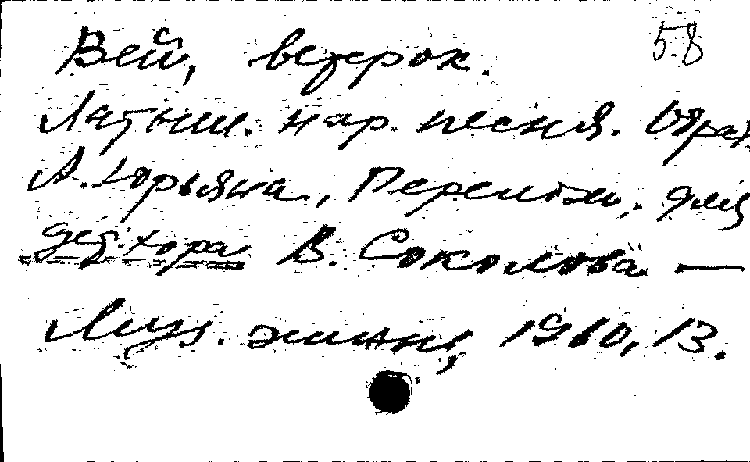 58
Вей, ветерок.
Латыш. нар. песня. Обраб.
А. Юрьяна, Перелож. для
дет. хора В. Соколова —
Муз. жизнь, 1960, 13.